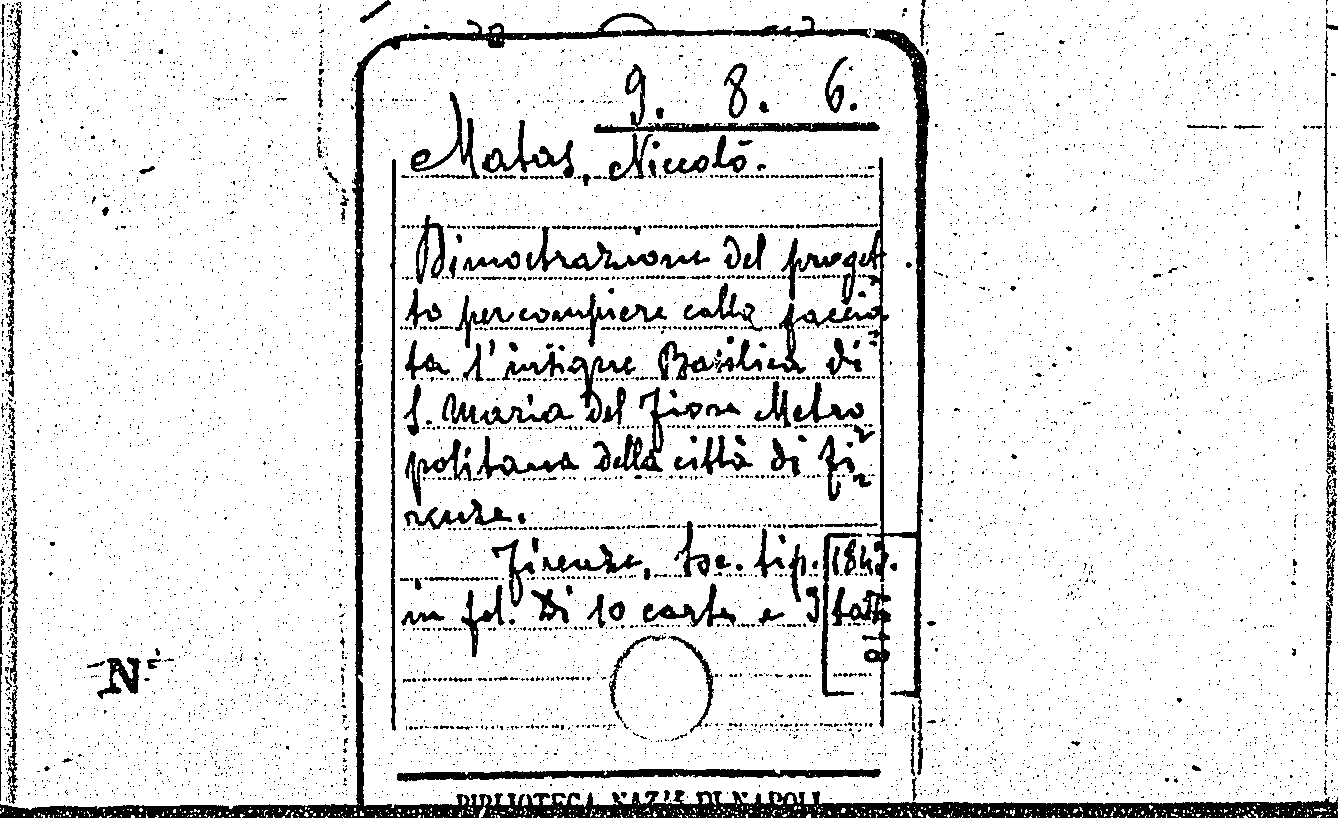 9. 8. 6.
Matas, Niccolò.
Dimostrazione del proget
to per compiere colla faccia
ta l'insigne Basilica di
S. Maria del Fiore Metro
politana della città di Fi
renze.
Firenze, soc. tip. 1843.
in fol. Di 10 carte e 3 tav
N
BIBLIOTECA NAZ.LE DI NAPOLI